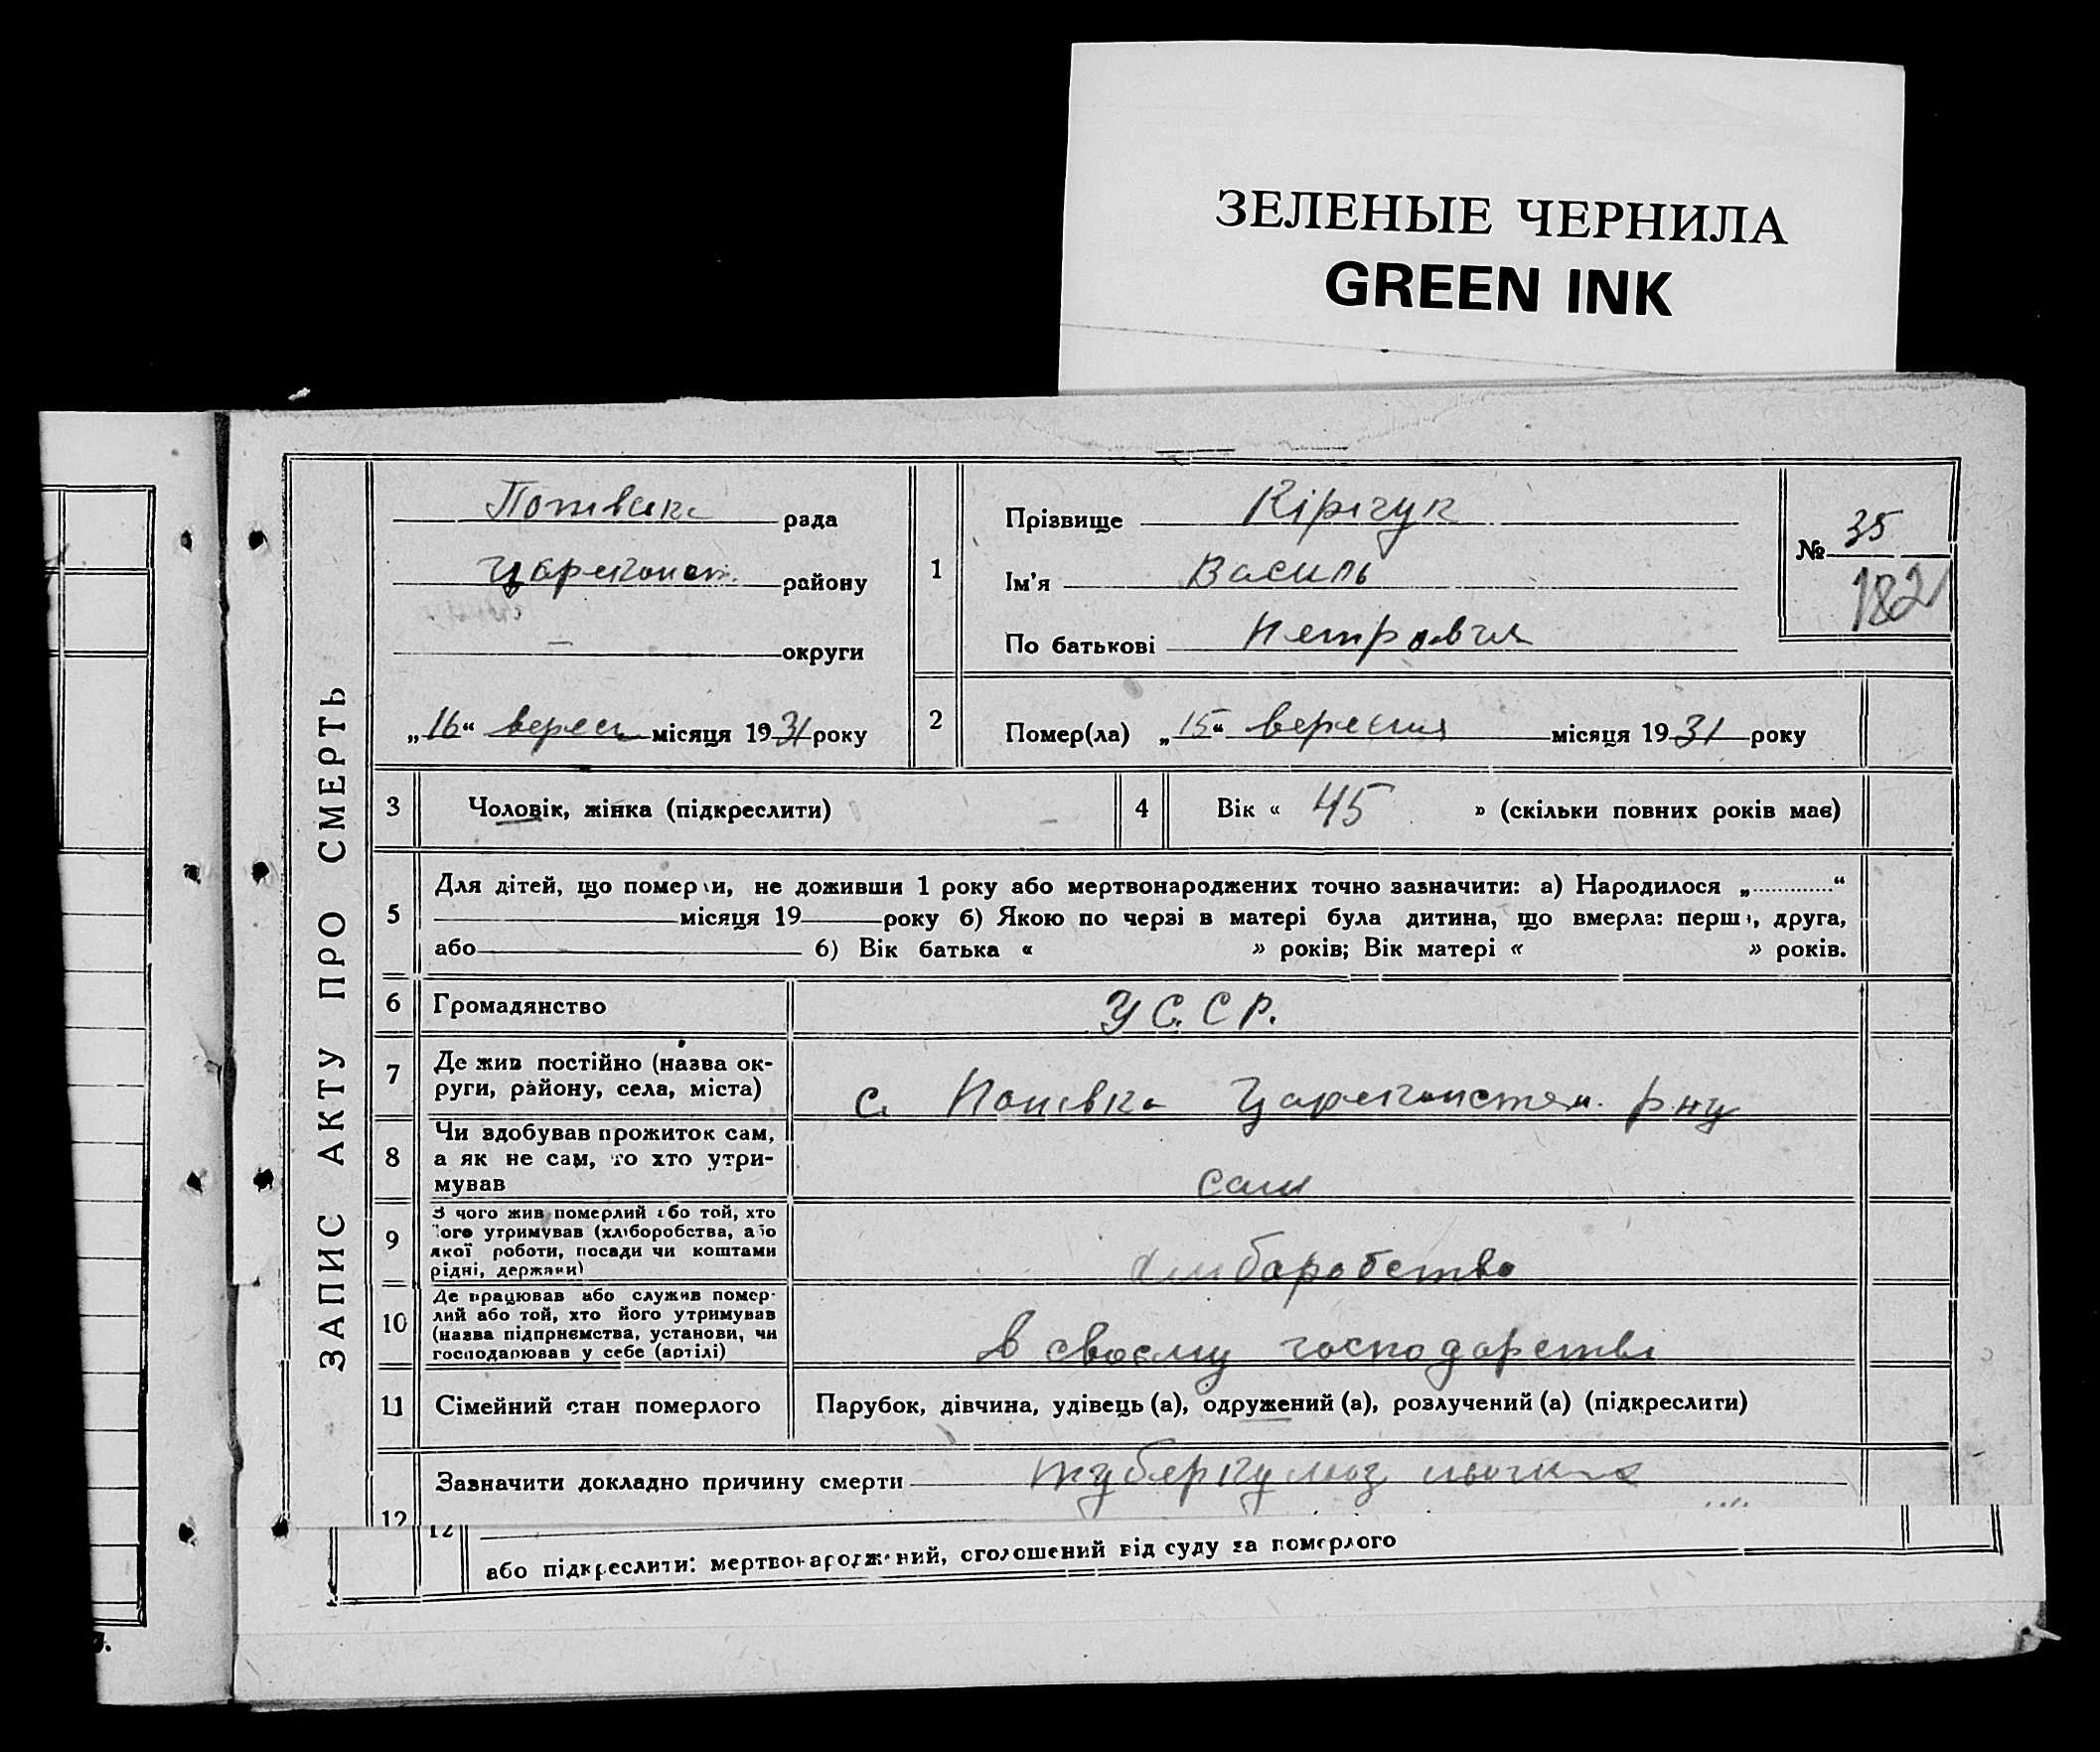 ЗЕЛЕНЫЕ ЧЕРНИЛА
GREEN INK
ЗАПИС АКТУ ПРО СМЕРТЬ
рада
району
— округи
„16“ верес місяця 1931 року
1
Прізвище Кірічук
Ім’я Василь
По батькові Петрович
№ 35
182
2
Помер(ла) „15“ вересня місяця 1931 року
3 Чоловік, жінка (підкреслити)
4 Вік « 45 » (скільки повних років має)
5
Для дітей, що померли, не доживши 1 року або мертвонароджених точно зазначити: а) Народилося „ “
місяця 19 року б) Якою по черзі в матері була дитина, що вмерла: перша, друга,
або б) Вік батька « » років; Вік матері « » років.
6 Громадянство У С. С Р.
7
Де жив постійно (назва ок-
руги, району, села, міста)
с. Попівка р-ну
8
Чи здобував прожиток сам,
а як не сам, то хто утри-
мував
сам
9
З чого жив померлий або той, хто
його утримував (хліборобства, або
якої роботи, посади чи коштами
рідні, держави)
хліборобство
10
Де працював або служив помер-
лий або той, хто його утримував
(назва підприємства, установи, чи
господарював у себе (артілі)
в своєму господарстві
11 Сімейний стан померлого Парубок, дівчина, удівець (а), одружений (а), розлучений (а) (підкреслити)
Зазначити докладно причину смерти туберкульоз
12
12
або підкреслити: мертвонароджений, оголошений від суду за померлого